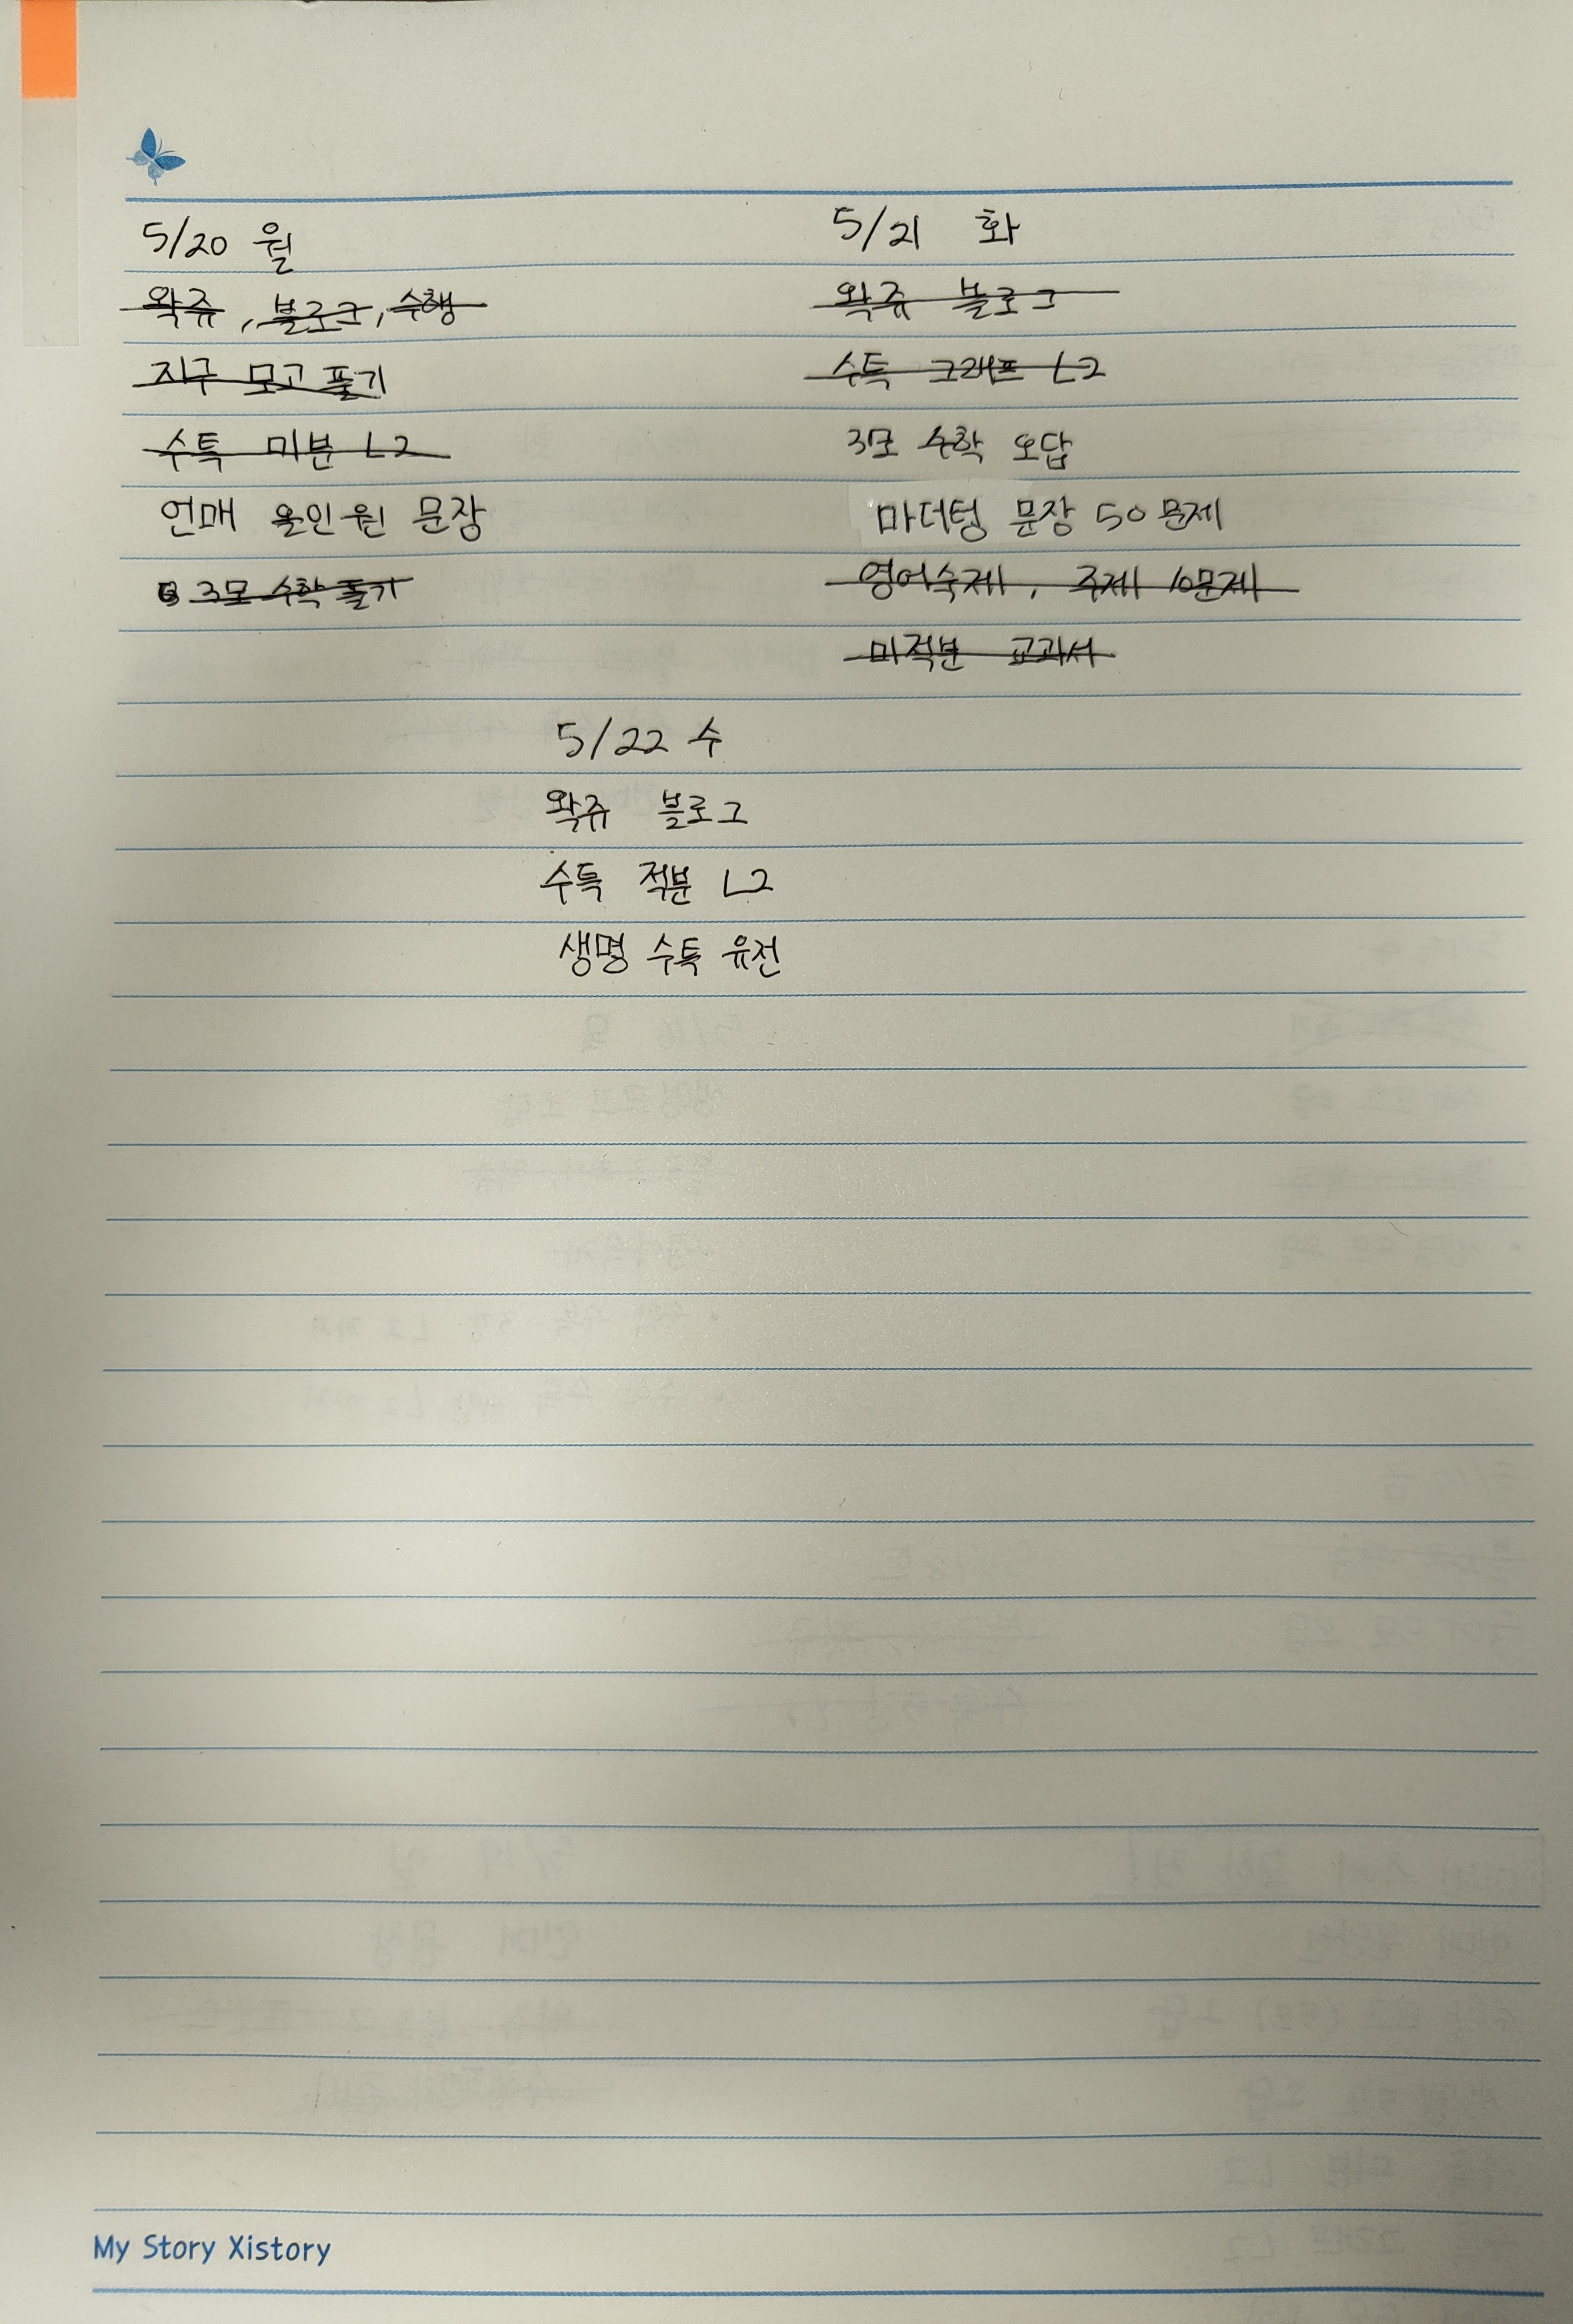 5/20 월
왁쥬, 블로그, 수행
지구 모고 풀기
수특 미분 L2
언매 올인원 문장
3모 수학 풀기
5/21 화
왁쥬 블로그
수특 그래프 L2
3모 수학 오답
마더텅 문장 50문제
영어숙제, 주제 10문제
미적분 교과서
5/22 수
왁쥬 블로그
수특 적분 L2
생명 수특 유전
My Story Xistory